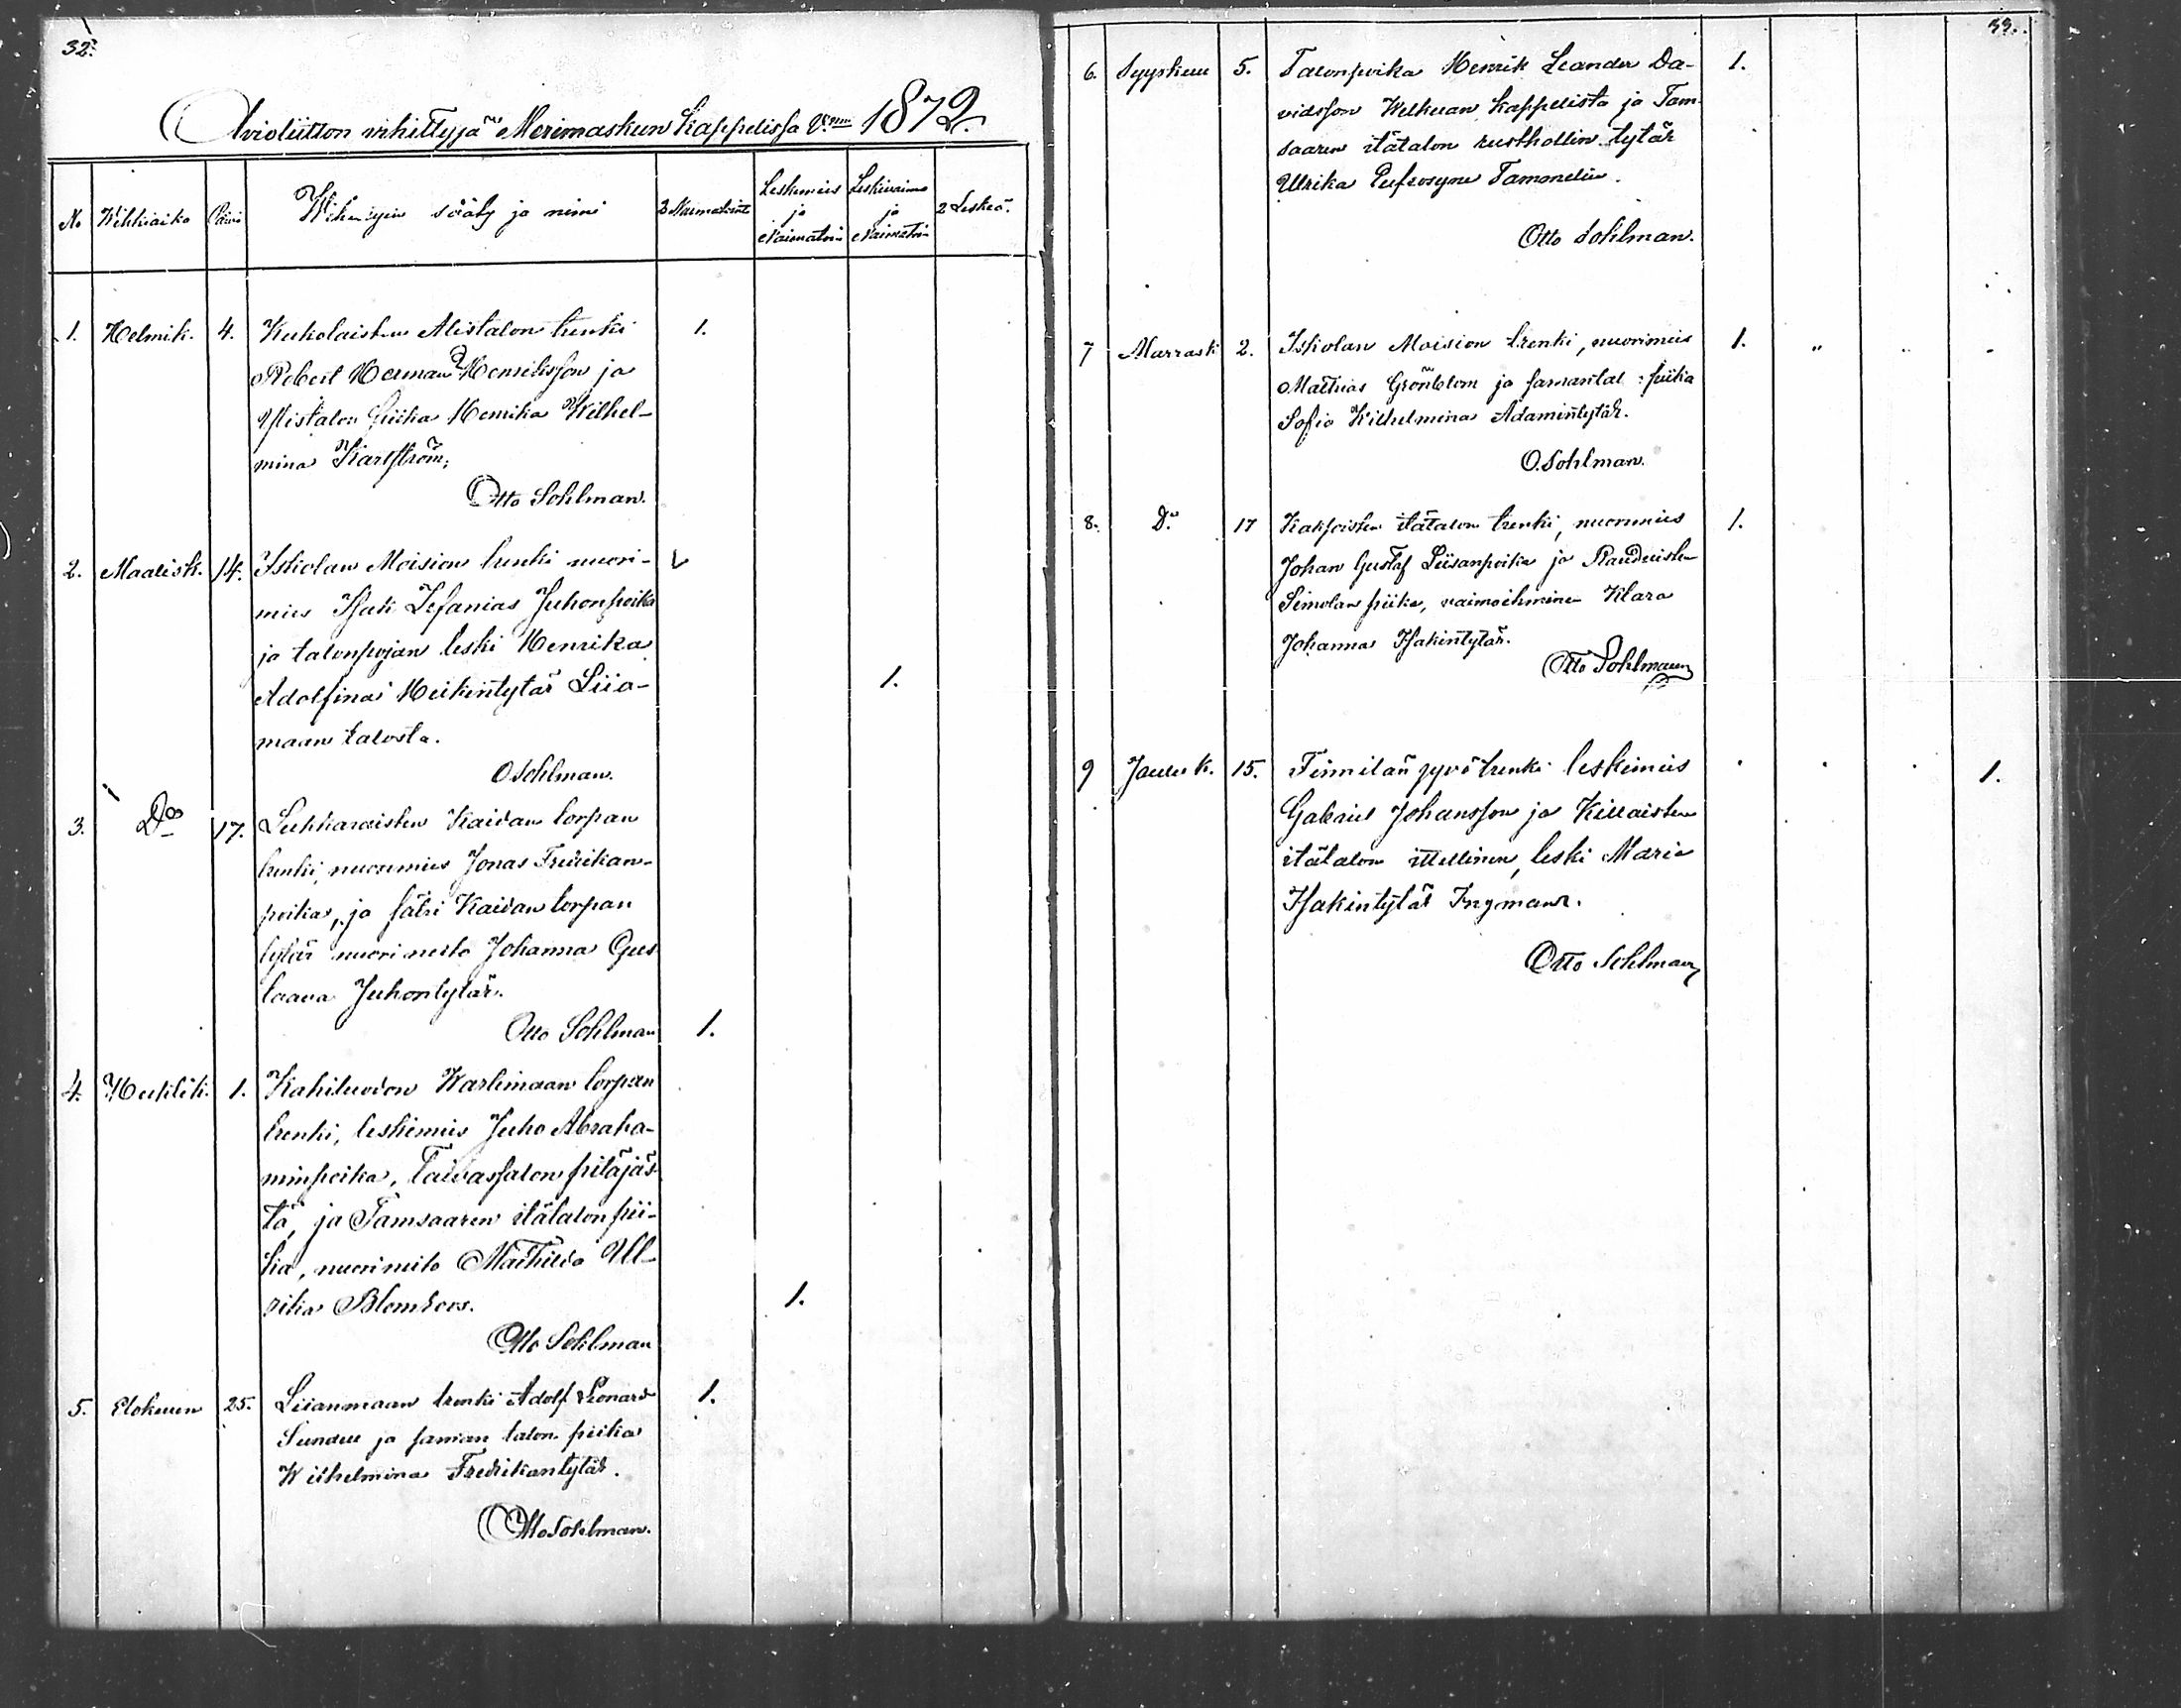 32.
Avioliitton vihittyjä Merimaskun Kappelissa v. 1872.
No Wihkiaika Päivä Wihittyin sääty ja nimi 2 Naimatointa Leskimies ja Naimatoin Leskivaimo ja Naimatoin 2 Leskeä.
1. Helmik. 4. Kukolaisten Alistalon trenki 1.
Robert Herman Henriksson ja
Ylistalon Piika Henrika Wilhel-
mina Karlström;
Otto Sohlman.
2. Maalisk. 14. Iskolan Moision trenki nuori-
mies Isak Zefanias Juhonpoika
ja talonpojan leski Henrika
Adolfina Heikintytär Liia- 1.
maan talosta.
O Sohlman.
3. Do 17. Lukkaraisten Kaivan torpan
trenki, nuorimies Jonas Fredrikan-
poika, ja Kaivan torpan
tytär nuori neito Johanna Gus
taava Juhontytär.
Otto Sohlman 1.
4. Huhtik. 1. Kahiluodon Karlimaan torpan
trenki, leskimies Juho Abraha-
minpoika, Taivassalon pitäjäs-
tä, ja Tamsaaren itätalon pii-
ka, nuorineito Mathilda Ul-
rika Blomroos. 1.
Otto Sohlman
5. Elokuun 25. Liianmaan trenki Adolf Leonard 1.
Sundell ja saman talon piika
Wilhelmina Fredrikantytär.
Otto Sohlman.
33.
6. Syyskuu 5. Talonpoika Henrik Leander Da- 1.
vidsson Welkuan kappelista ja Tam-
saaren itätalon rusthollin tytär
Ulrika Eufrosyne Tamonelin.
Otto Sohlman.
7 Marrask 2. Iskolan Moision trenki, nuorimies 1. " "
Mathias Grönblom ja samantal: piika
Sofia Wilhelmina Adamintytär.
O. Sohlman.
8. Do 17 Kaksoisten itätalon trenki, nuorimies 1.
Johan Gustaf Liisanpoika ja
Simolan piika, vaimoihminen Klara
Johanna Isakintytär.
Otto Sohlman
9 Jouluk. 15. Finnilän trenki leskimies 1.
Gabriel Johansson ja Killaisten
itätalon ittellinen, leski Maria
Isakintytär Ingman.
Otto Sohlman